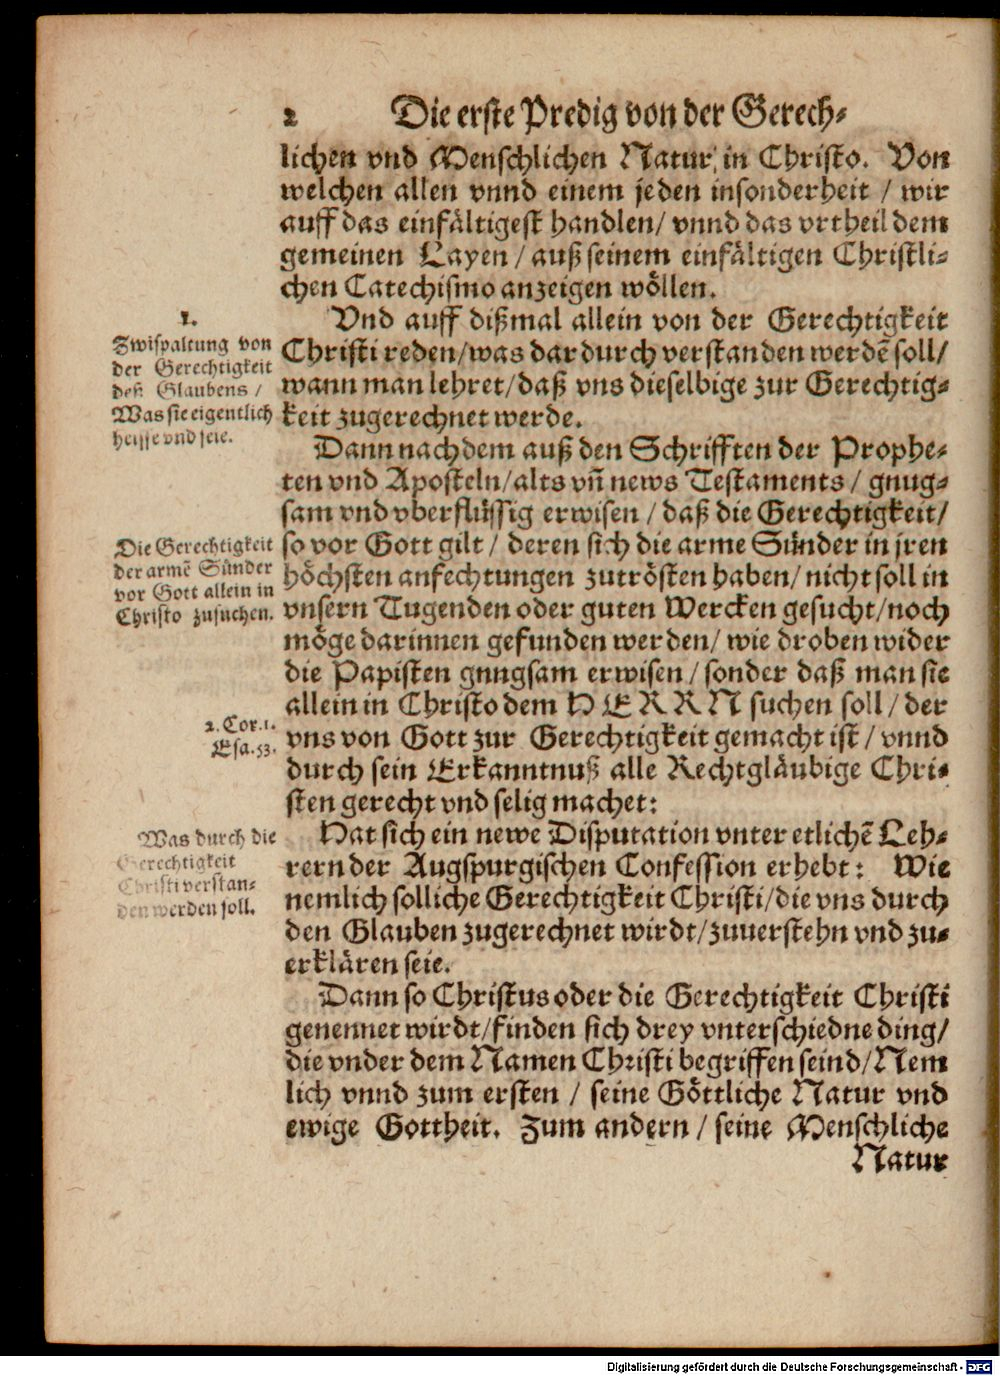 2 Die erste Predig von der Gerech-
lichen vnd Menschlichen Natur, in Christo. Von
welchen allen vnnd einem jeden insonderheit / wir
auff das einfältigest handlen/ vnnd das vrtheil dem
gemeinen Layen / auß seinem einfältigen Christli-
chen Catechismo anzeigen wöllen.
Vnd auff dißmal allein von der Gerechtigkeit
Christi reden/was dardurch verstanden werdē soll/
wann man lehret/daß vns dieselbige zur Gerechtig-
keit zugerechnet werde.
1.
Zwispaltung von
der Gerechtigkeit
deß Glaubens /
Was sie eigentlich
heisse vnd seie.
Dann nachdem auß den Schrifften der Prophe-
ten vnd Aposteln/alts vñ news Testaments / gnug-
sam vnd vberflüssig erwisen / daß die Gerechtigkeit/
so vor Gott gilt / deren sich die arme Sünder in jren
höchsten anfechtungen zutrösten haben/ nicht soll in
vnsern Tugenden oder guten Wercken gesucht/noch
möge darinnen gefunden werden/ wie droben wider
die Papisten gnugsam erwisen / sonder daß man sie
allein in Christo dem HERRN suchen soll / der
vns von Gott zur Gerechtigkeit gemacht ist / vnnd
durch sein Erkanntnuß alle Rechtgläubige Chri-
sten gerecht vnd selig machet:
Die Gerechtigkeit
der armē Sünder
vor Gott allein in
Christo zusuchen.
1. Cor. 1.
Esa. 53.
Hat sich ein newe Disputation vnter etlichē Leh-
rern der Augspurgischen Confession erhebt: Wie
nemlich solliche Gerechtigkeit Christi/die vns durch
den Glauben zugerechnet wirdt/zuuerstehn vnd zu-
erklären seie.
Was durch die
Gerechtigkeit
Christi verstan-
den werden soll.
Dann so Christus oder die Gerechtigkeit Christi
genennet wirdt/finden sich drey vnterschiedne ding/
die vnder dem Namen Christi begriffen seind/Nem
lich vnnd zum ersten / seine Göttliche Natur vnd
ewige Gottheit. Zum andern / seine Menschliche
Natur
Digitalisierung gefördert durch die Deutsche Forschungsgemeinschaft - DFG